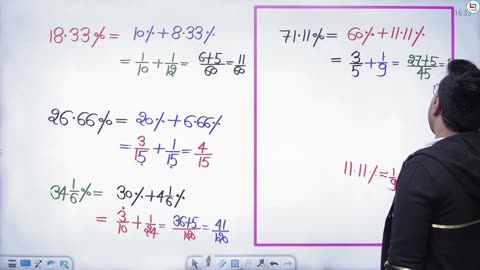 16:33
18.33% = 10% + 8.33%
= 1/10 + 1/12 = 6+5/60 = 11/60
26.66% = 20% + 6.66%
= 3/15 + 1/15 = 4/15
34 1/6 % = 30% + 4 1/6 %
= 3/10 + 1/24 = 36+5/120 = 41/120
71.11% = 60% + 11.11%
= 3/5 + 1/9 = 27+5/45 =
11.11% ≈ 1/9